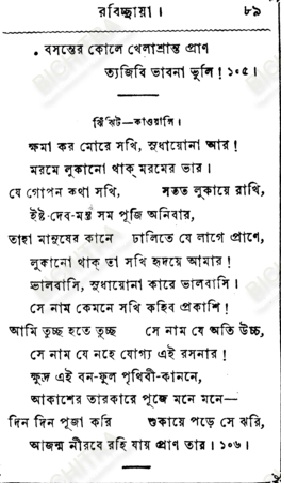 রবিচ্ছায়া। ৮৯
বসন্তের কোলে খেলাশ্রান্ত প্রাণ
ত্যজিবি ভাবনা ভুলি! ১০৫॥
ঝিঁঝিট—কাওয়ালি।
ক্ষমা কর মোরে সখি, সুধায়োনা আর!
মরমে লুকানো থাক্ মরমের ভার।
যে গোপন কথা সখি, সতত লুকায়ে রাখি,
ইষ্ট-দেব-মন্ত্র সম পূজি অনিবার,
তাহা মানুষের কানে ঢালিতে যে লাগে প্রাণে,
লুকানো থাক্ তা সখি হৃদয়ে আমার!
ভালবাসি, সুধায়োনা কারে ভালবাসি।
সে নাম কেমনে সখি কহিব প্রকাশি!
আমি তুচ্ছ হতে তুচ্ছ সে নাম যে অতি উচ্চ,
সে নাম যে নহে যোগ্য এই রসনার!
ক্ষুদ্র এই বন-ফুল পৃথিবী-কাননে,
আকাশের তারকারে পূজে মনে মনে—
দিন দিন পূজা করি শুকায়ে পড়ে সে ঝরি,
আজন্ম নীরবে রহি যায় প্রাণ তার। ১০৬।